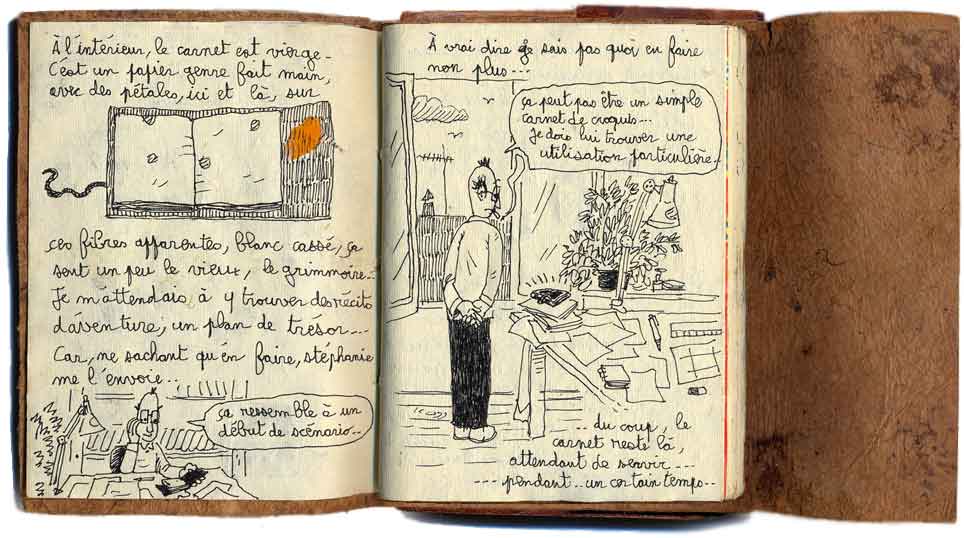 À l'intérieur, le carnet est vierge.
C'est un papier genre fait main,
avec des pétales, ici et là, sur
ces fibres apparentes, blanc cassé, ça
sent un peu le vieux, le grimmoire...
Je m'attendais à y trouver des récits
d'aventure, un plan de trésor...
Car, ne sachant qu'en faire, stéphanie
me l'envoie..
ça ressemble à un
début de scénario...
À vrai dire je sais pas quoi en faire
non plus...
ça peut pas être un simple
carnet de croquis...
Je dois lui trouver une
utilisation particulière.
.. du coup, le
carnet reste là,
attendant de servir ...
... pendant.. un certain temps..